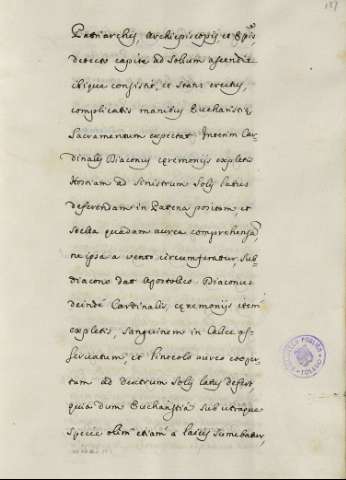 187
Patriarchis, Archiepiscopis, et Epis,
detecto capite ad Solium ascendit
ibique consistit, et stans erectus,
complicatis manibus Eucharistię
Sacramentum expectat. Interim Car=
dinalis Diaconus cęremonijs expletis
Hostiam ad Sinistrum Solij latus
deferendam in Patena positam, et
Stella quadam aurea comprehensã,
ne ipsa a vento circumferatur, Sub=
diacono dat Apostolico. Diaconus
deinde Cardinalis, cęremonijs item
expletis, Sanguinem in Calice as=
servatum, et Linteolo aureo cooper=
tum ad dextrum Solij latus defert,
quia dum Eucharistia Sub utraque
Specie olim etiam a laicis sumebatur,
BIBLIOTECA PUBLICA
TOLEDO